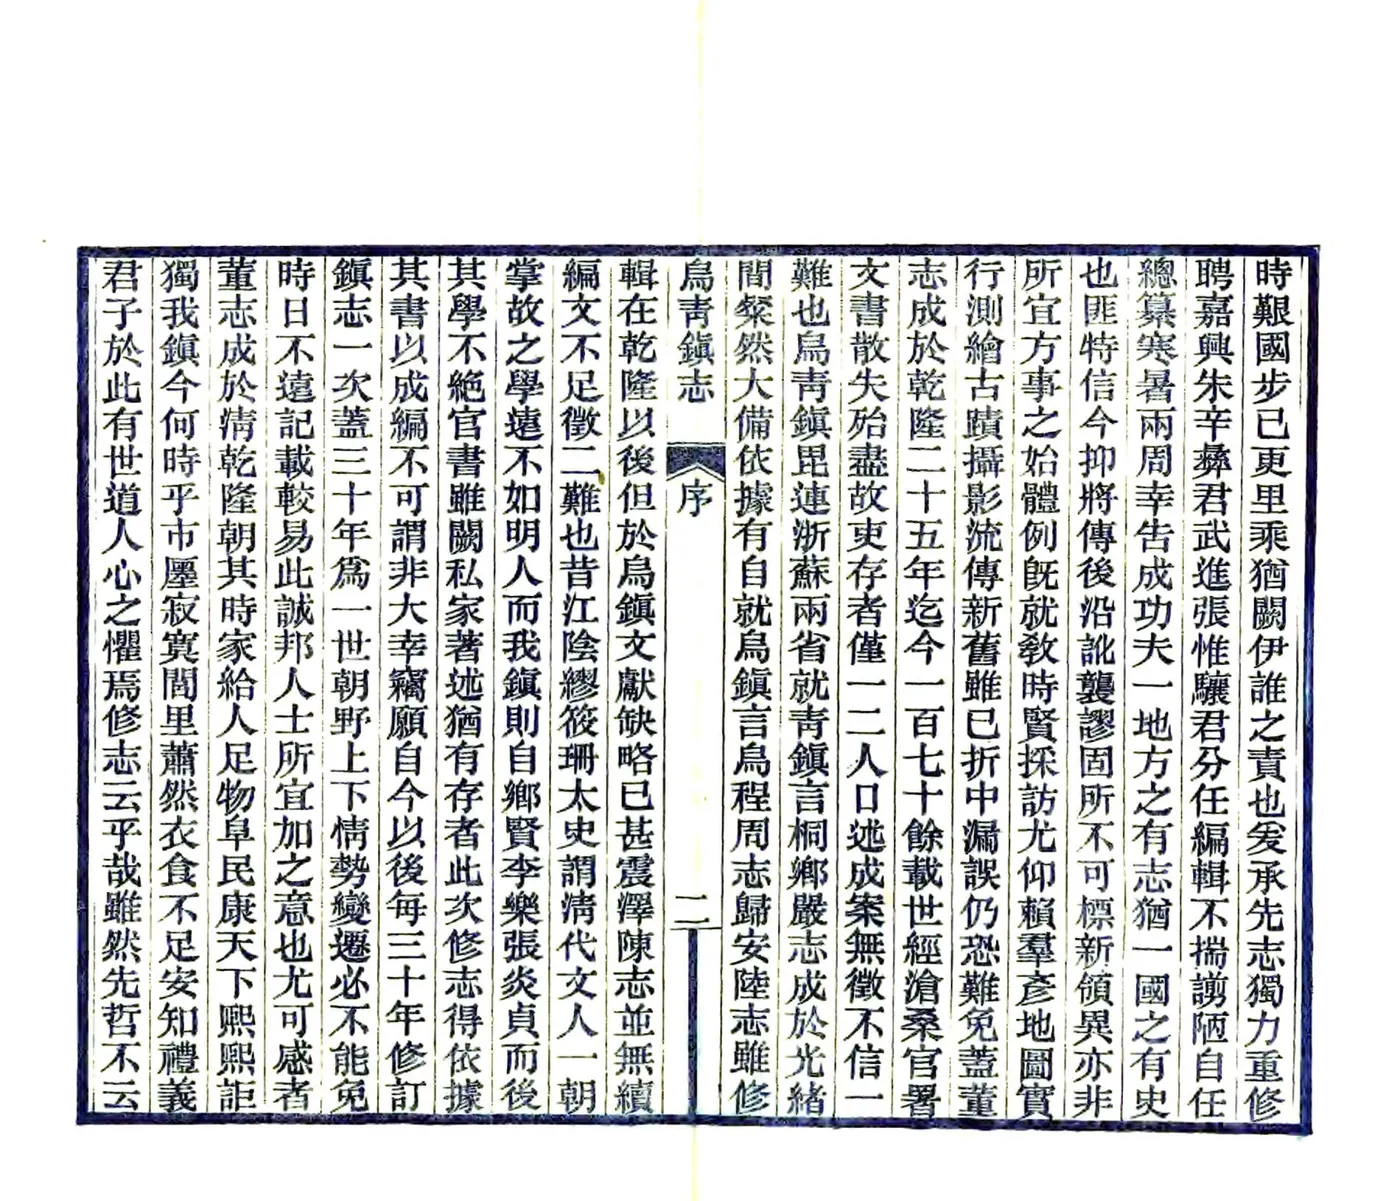 時艱國步已更里乘猶闕伊誰之責也爰承先志獨力重修
聘嘉興朱辛彝君武進張惟驤君分任編輯不揣謭陋自任
總纂寒暑兩周幸告成功夫一地方之有志猶一國之有史
也匪特信今抑將傳後沿訛襲謬固所不可標新領異亦非
所宜方事之始體例旣就敎時賢採訪尤仰賴羣彥地圖實
行測繪古蹟攝影流傳新舊雖已折中漏誤仍恐難免蓋董
志成於乾隆二十五年迄今一百七十餘載世經滄桑官署
文書散失殆盡故吏存者僅一二人口述成案無徵不信一
難也烏靑鎭毘連浙蘇兩省就靑鎭言桐鄉嚴志成於光緖
間粲然大備依據有自就烏鎭言烏程周志歸安陸志雖修
烏靑鎭志
序
二
輯在乾隆以後但於烏鎭文獻缺略已甚震澤陳志並無續
編文不足徵二難也昔江陰繆筱珊太史謂淸代文人一朝
掌故之學遠不如明人而我鎭則自鄉賢李樂張炎貞而後
其學不絕官書雖闕私家著述猶有存者此次修志得依據
其書以成編不可謂非大幸竊願自今以後每三十年修訂
鎭志一次蓋三十年爲一世朝野上下情勢變遷必不能免
時日不遠記載較易此誠邦人士所宜加之意也尤可感者
董志成於淸乾隆朝其時家給人足物阜民康天下熙熙詎
獨我鎭今何時乎市廛寂寞閭里蕭然衣食不足安知禮義
君子於此有世道人心之懼焉修志云乎哉雖然先哲不云